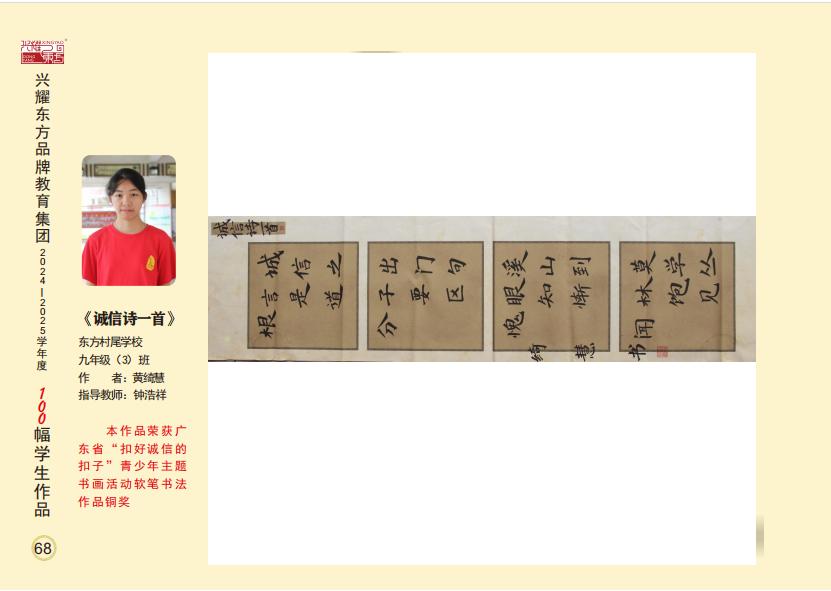 XINGYAO
DONG FANG
兴耀东方品牌教育集团
2024—2025学年度
100幅学生作品
68
《诚信诗一首》
东方村尾学校
九年级（3）班
作　　者：黄绮慧
指导教师：钟浩祥
本作品荣获广
东省“扣好诚信的
扣子”青少年主题
书画活动软笔书法
作品铜奖
诚信诗一首
诚信之
言是道
根
出门句
子要区
分
溪山到
眼知惭
愧
莫学丛
林饱见
闻
绮慧书